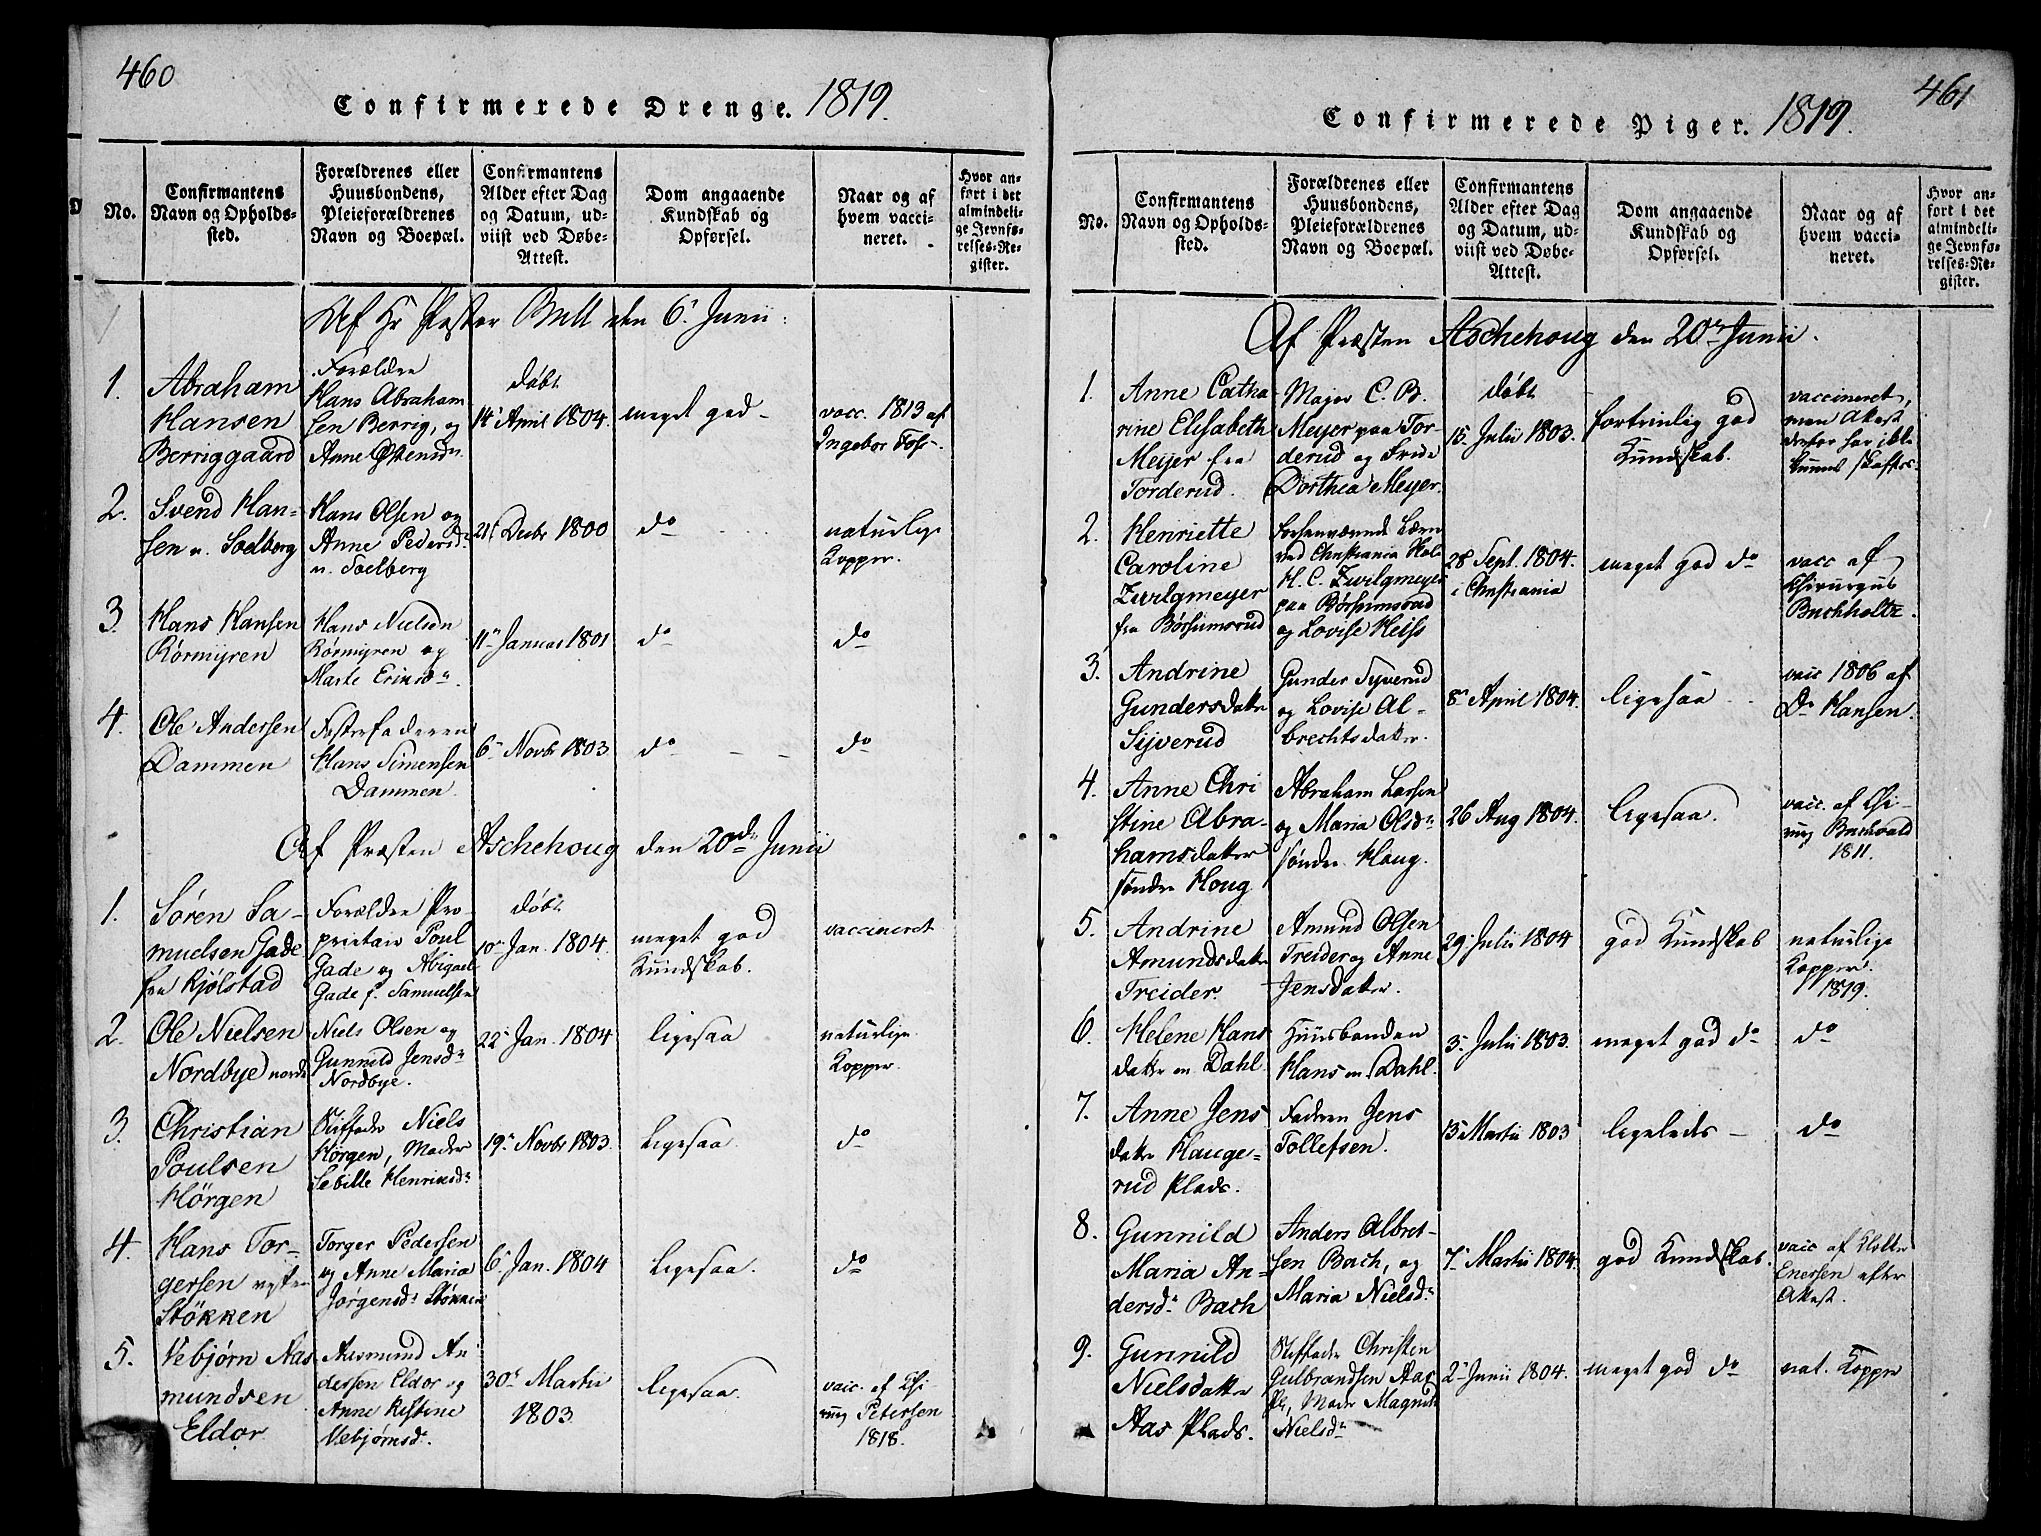 460
Confirmerede Drenge. 1819.
No.
Confirmantens
Navn og Opholds-
sted.
Forældrenes eller
Huusbondens,
Pleieforældrenes
Navn og Boepæl.
Confirmantens
Alder efter Dag
og Datum, ud-
viist ved Døbe-
Attest.
Dom angaaende
Kundskab og
Opførsel.
Naar og af
hvem vacci-
neret.
Hvor an-
ført i det
almindeli-
ge Jevnfø-
relses-Re-
gister.
Af Hr Pastor Bull den 6. Junii
1.
Abraham
Hansen
Berriggaard
Forældre
Hans Abraham
sen Berrig, og
Anne Østensdr
døbt
14 April 1804.
meget god
vacc. 1813 af
Ingebor Foss
2.
Svend Han-
sen n. Soelberg
Hans Olsen og
Anne Pedersdr
n. Soelberg
21 Decbr 1800
do
naturlige
Kopper.
3.
Hans Hansen
Kørmyren
Hans Nielsen
Kørmyren og
Marte Eriksdr.
11 Januar 1801
do
do
4.
Ole Andersen
Dammen
Festerfaderen
Hans Simensen
Dammen.
6 Novbr 1803
do
do
Af Præsten Aschehoug den 20de Junii
1.
Søren Sa-
muelsen Gade
fra Kjølstad
Forældre Pro-
prietair Poul
Gade og Abigael
Gade f. Samuelsen
døbt
10 Jan. 1804.
meget god
Kundskab.
vaccineret
2.
Ole Nielsen
Nordbye nordr
Niels Olsen og
Gunnild Jensdr
Nordbye.
22 Jan. 1804
ligesaa
naturlige
Kopper
3.
Christian
Poulsen
Hörgen
Stiffader Niels
Hørgen, Moder
Sebille Henriksdr
19 Novbr 1803.
Ligesaa.
do
4.
Hans Tor-
gersen vestre
Stökken
Torger Pedersen
og Anne Maria
Jørgensdr Støkken
6 Jan. 1804
Ligesaa.
do
5.
Vebjørn Aas
mundsen
Eldor
Aasmund An
dersen Eldor og
Anne Kistine
Vebjørnsdr.
30 Martii
1803
ligesaa.
vacc. af Chi-
rurg Petersen
1818.
461
Confirmerede Piger. 1819.
No.
Confirmantens
Navn og Opholds-
sted.
Forældrenes eller
Huusbondens,
Pleieforældrenes
Navn og Boepæl.
Confirmantens
Alder efter Dag
og Datum, ud-
viist ved Døbe-
Attest.
Dom angaaende
Kundskab og
Opførsel.
Naar og af
hvem vacci-
neret.
Hvor an-
ført i det
almindeli-
ge Jevnfø-
relses-Re-
gister.
Af Præsten Aschehoug den 20de Junii.
1.
Anne Catha
rine Elisabeth
Meyer fra
Torderud.
Major C. B.
Meyer paa Tor-
derud og Frue
Dorthea Meyer.
døbt
15. Julii 1803.
fortrinlig god
Kundskab.
vaccineret,
men Attest
derfor har ikke
kunnet skaffes.
2.
Henriette
Caroline
Zwilgmeyer
fra Børsumsrud
ved Christiania
H. C. Zwilgmeyer
paa Børsumsrud
og Lovise Heiss
28 Sept. 1804.
i Christiania
meget god do
vacc af
Chirurgus
Buchholtz.
3.
Andrine
Gundersdatter
Sijverud
Gunder Syverud
og Lovise Al-
brechtsdatter.
8 April 1804.
ligesaa
vacc 1806 af
Dr Hansen.
4.
Anne Chri
stine Abra-
hamsdatter
søndre Houg
Abraham Larsen
og Maria Olsdr
søndre Haug.
26 Aug 1804.
ligesaa.
vacc. af Chi-
rurg Buchvald
1811.
5.
Andrine
Amundsdatter
Treider.
Amund Olsen
Treider og Anne
Jensdatter.
29 Julii 1804
god Kundskab
naturlige
Kopper.
1819.
6.
Helene Hans
datter m Dahl.
Huusbonden
Hans m Dahl.
3 Julii 1803.
meget god do
do
7.
Anne Jens
datter Hauge-
rud Plads.
Faderen Jens
Tollefsen.
13 Martii 1803
ligeleds
do
8.
Gunnild
Maria An-
dersdr Bach
Anders Albret-
sen Bach, og
Maria Nielsdr
7 Martii 1804.
god Kundskab.
vacc af Klokker
Enersen efter
Attest.
9.
Gunnild
Nielsdatter
Aas Plads.
Stiffader Christen
Gulbrandsen Aas
Pl, Moder Magnild
Nielsdr
2 Junii 1804.
meget god do
nat. Kopper